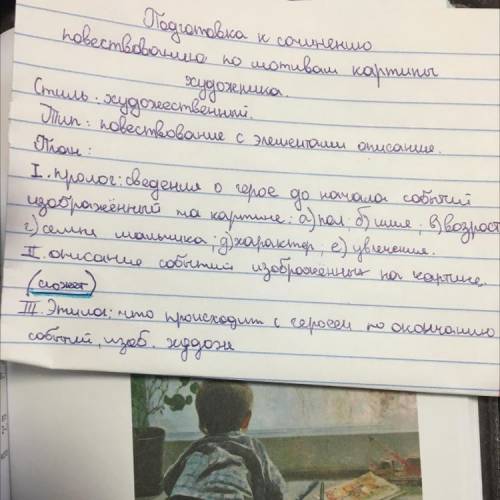 Подготовка к сочинению
повествованию по мотивам картины
художника.
Стиль: художественный.
Тип: повествование с элементами описание.
План:
I. пролог: сведения о герое до начала событий
изображённый на картине: а) пол; б) имя; в) возраст
г) семья мальчика; д) характер; е) увлечения.
II. описание событий изображённых на картине.
(сюжет)
III. Эпилог: что происходит с героем по окончанию
событий, изоб. худож